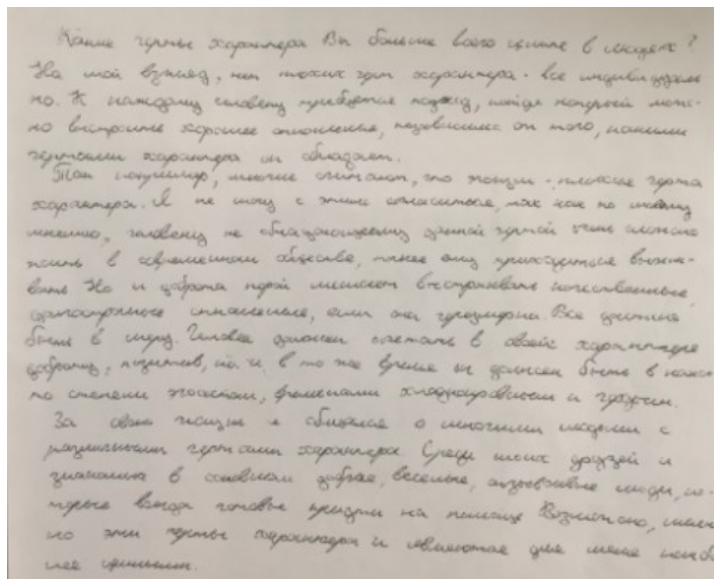 Какие черты характера Вы больше всего цените в людях?
На мой взгляд, нет таких черт характера - все индивидуаль
но. К каждому человеку требуется подход, найдя который мож-
но выстроить хорошие отношения, независимо от того, какими
чертами характера он обладает.
Так например, многие считают, что эгоизм - плохая черта
характера. Я не могу с этим согласиться, так как по моему
мнению, человеку не обладающему данной чертой очень сложно
жить в современном обществе, ему приходиться выжи-
вать Но и доброта порой мешает выстраивать качественные,
отношения, если она чрезмерна. Все должно
быть в меру. Человек должен сочетать в своём характере
доброту, позитив, но и в то же время он должен быть в како
то степени эгоистом, хладнокровным и
За свою жизнь я общался с многими людьми с
различными чертами характера. Среди моих друзей и
знакомых в основном добрые, веселые, отзывчивые люди, ко-
торые всегда готовы придти на помощь Возможно, имен
но эти черты характера и являются для меня наибо
лее ценными.